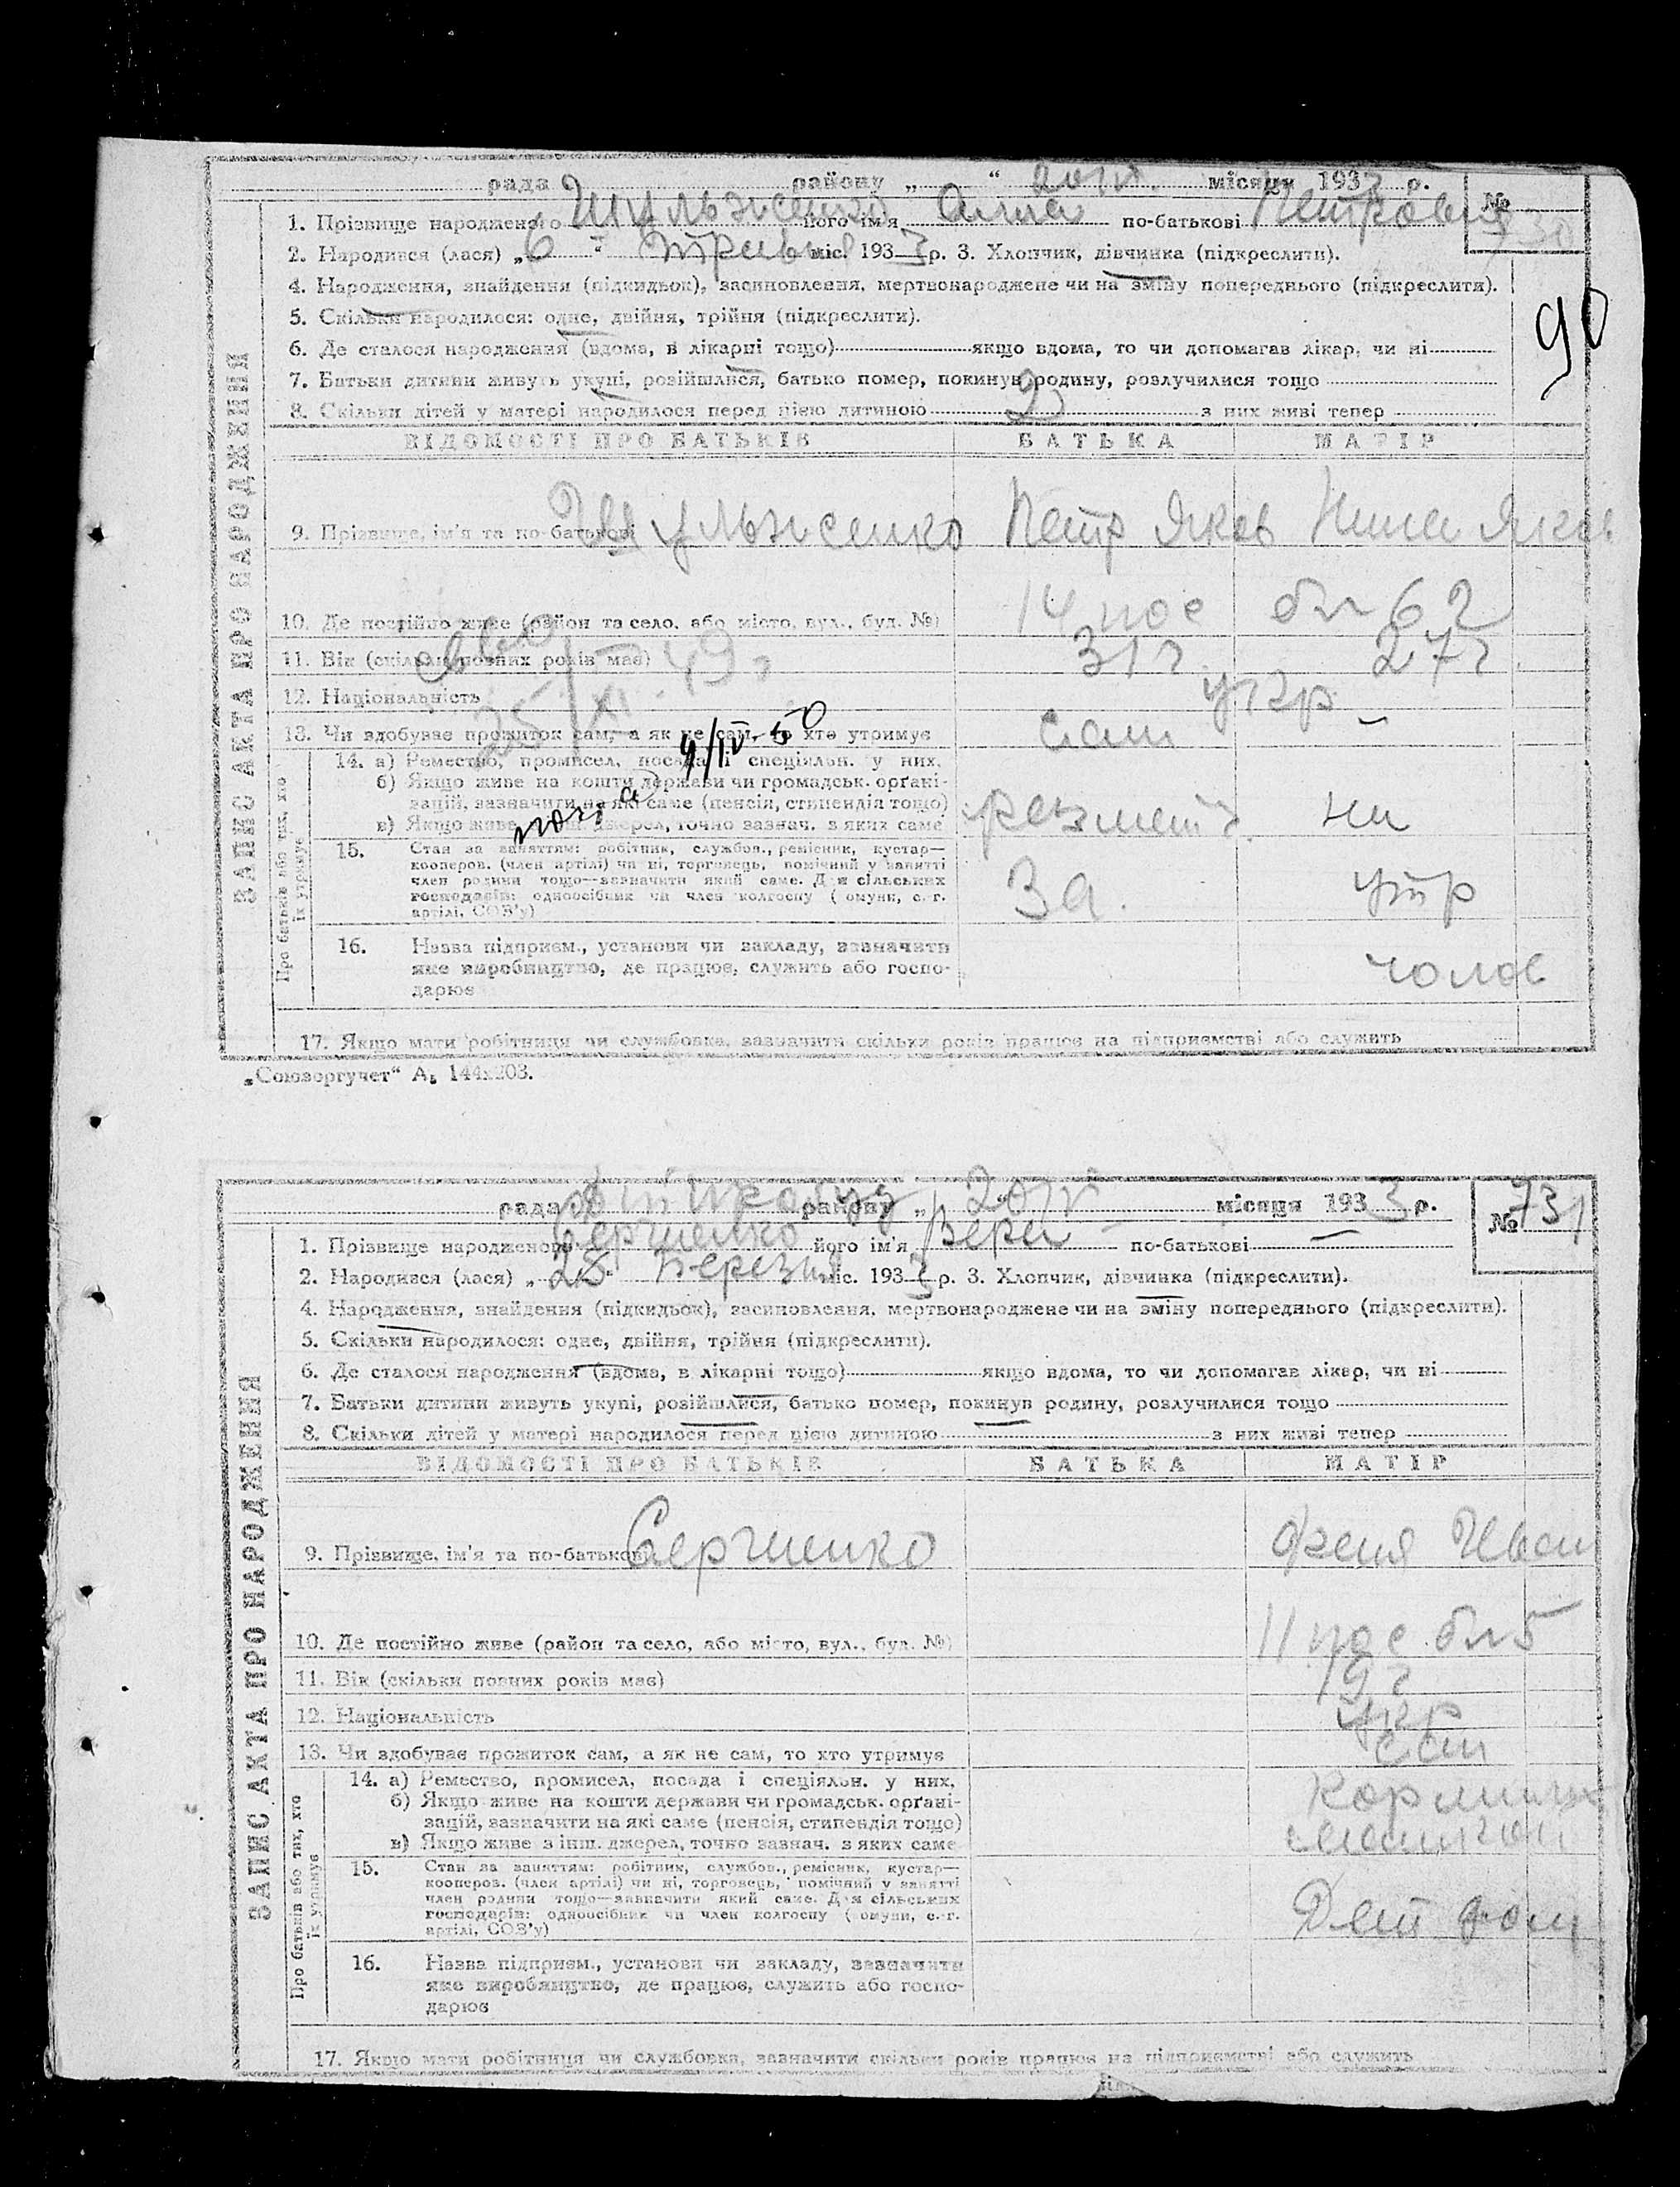 рада району „ “ 20/V місяця 1933 р.
№ 730
1. Прізвище народженого Шульженко його ім'я Анна по-батькові Петровна
2. Народився (лася) „6“ травня міс. 1933 р. 3. Хлопчик, дівчинка (підкреслити).
4. Народження, знайдення (підкидьок), засиновлення, мертвонароджене чи на зміну попереднього (підкреслити).
90
5. Скільки народилося: одне, двійня, трійня (підкреслити).
6. Де сталося народження (вдома, в лікарні тощо) якщо вдома, то чи допомагав лікар, чи ні
7. Батьки дитини живуть укупі, розійшлися, батько помер, покинув родину, розлучилися тощо
8. Скільки дітей у матері народилося перед цією дитиною 2 з них живі тепер
ВІДОМОСТІ ПРО БАТЬКІВ БАТЬКА МАТІР
ЗАПИС АКТА ПРО НАРОДЖЕННЯ
9. Прізвище, ім'я та по-батькові Шульженко Петр Яков Нина Яков
10. Де постійно живе (район та село, або місто, вул., буд. №) 14 пос бл 62
11. Вік (скільки повних років має) 31 г. 27 г
25/XI 49 г
12. Національність укр
13. Чи здобуває прожиток сам, а як не сам, то хто утримує сам –
4/IV-50
Про батьків або тих, хто їх утримує
14. а) Ремество, промисел, посада і спеціяльн. у них.
б) Якщо живе на кошти держави чи громадськ. орґані-
зацій, зазначити на які саме (пенсія, стипендія тощо)
в) Якщо живе з інш. джерел, точно зазнач. з яких саме ни
15. Стан за заняттям: робітник, службов., ремісник, кустар—
кооперов. (член артілі) чи ні, торговець, помічний у занятті
член родини тощо—зазначити який саме. Для сільських
господарів: одноосібник чи член колгоспу (комуни, с.-г.
артілі, СОЗ'у) утр
16. Назва підприєм., установи чи закладу, зазначити
яке виробництво, де працює, служить або госпо-
дарює чолов
17. Якщо мати робітниця чи службовка, зазначити скільки років працює на підприємстві або служить
„Союзоргучет“ А₅ 144х203.
рада району „ “ 20/V місяця 1933 р.
№ 731
1. Прізвище народженого Сергиенко його ім'я Вера по-батькові —
2. Народився (лася) „25“ Березня міс. 1933 р. 3. Хлопчик, дівчинка (підкреслити).
4. Народження, знайдення (підкидьок), засиновлення, мертвонароджене чи на зміну попереднього (підкреслити).
5. Скільки народилося: одне, двійня, трійня (підкреслити).
6. Де сталося народження (вдома, в лікарні тощо) якщо вдома, то чи допомагав лікар, чи ні
7. Батьки дитини живуть укупі, розійшлися, батько помер, покинув родину, розлучилися тощо
8. Скільки дітей у матері народилося перед цією дитиною з них живі тепер
ВІДОМОСТІ ПРО БАТЬКІВ БАТЬКА МАТІР
ЗАПИС АКТА ПРО НАРОДЖЕННЯ
9. Прізвище, ім'я та по-батькові Сергиенко Феня Иван
10. Де постійно живе (район та село, або місто, вул., буд. №) 11 пос бл 5
11. Вік (скільки повних років має) 19 г
12. Національність укр
13. Чи здобуває прожиток сам, а як не сам, то хто утримує сам
Про батьків або тих, хто їх утримує
14. а) Ремество, промисел, посада і спеціяльн. у них.
б) Якщо живе на кошти держави чи громадськ. орґані-
зацій, зазначити на які саме (пенсія, стипендія тощо)
в) Якщо живе з інш. джерел, точно зазнач. з яких саме
15. Стан за заняттям: робітник, службов., ремісник, кустар—
кооперов. (член артілі) чи ні, торговець, помічний у занятті
член родини тощо—зазначити який саме. Для сільських
господарів: одноосібник чи член колгоспу (комуни, с.-г.
артілі, СОЗ'у) Дет дом
16. Назва підприєм., установи чи закладу, зазначити
яке виробництво, де працює, служить або госпо-
дарює
17. Якщо мати робітниця чи службовка, зазначити скільки років працює на підприємстві або служить